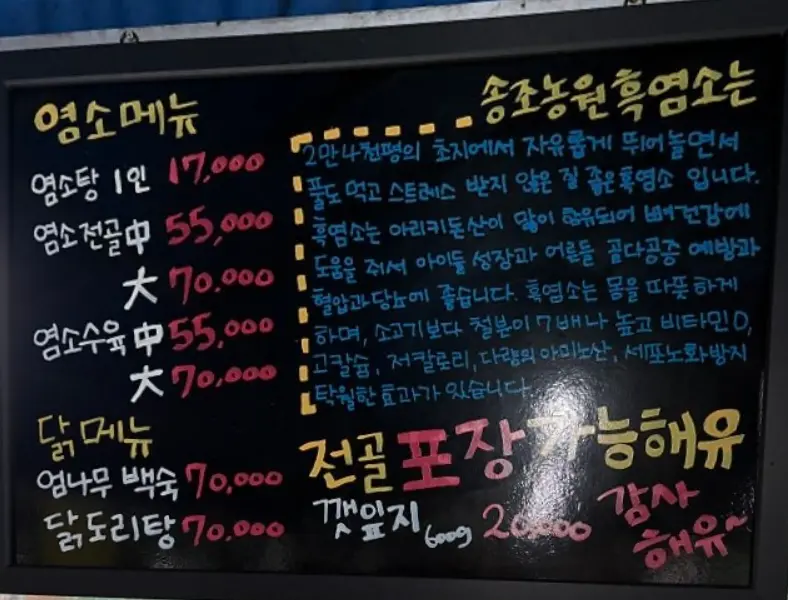 염소메뉴
염소탕 1인 17,000
염소전골 中 55,000
大 70.000
염소수육 中 55,000
大 70,000
닭메뉴
엄나무 백숙 70,000
닭도리탕 70,000
송조농원 흑염소는
2만4천평의 초지에서 자유롭게 뛰어놀면서
풀도 먹고 스트레스 받지 않은 질 좋은 흑염소 입니다.
흑염소는 아라키돈산이 많이 함유되어 뼈건강에
도움을 줘서 아이들 성장과 어른들 골다공증 예방과
혈압과 당뇨에 좋습니다. 흑염소는 몸을 따뜻하게
하며, 소고기보다 철분이 7배나 높고 비타민D,
고칼슘, 저칼로리, 다량의 아미노산, 세포노화방지
탁월한 효과가 있습니다.
전골 포장 가능해유
깻잎지 600g 20,000
감사
해유~